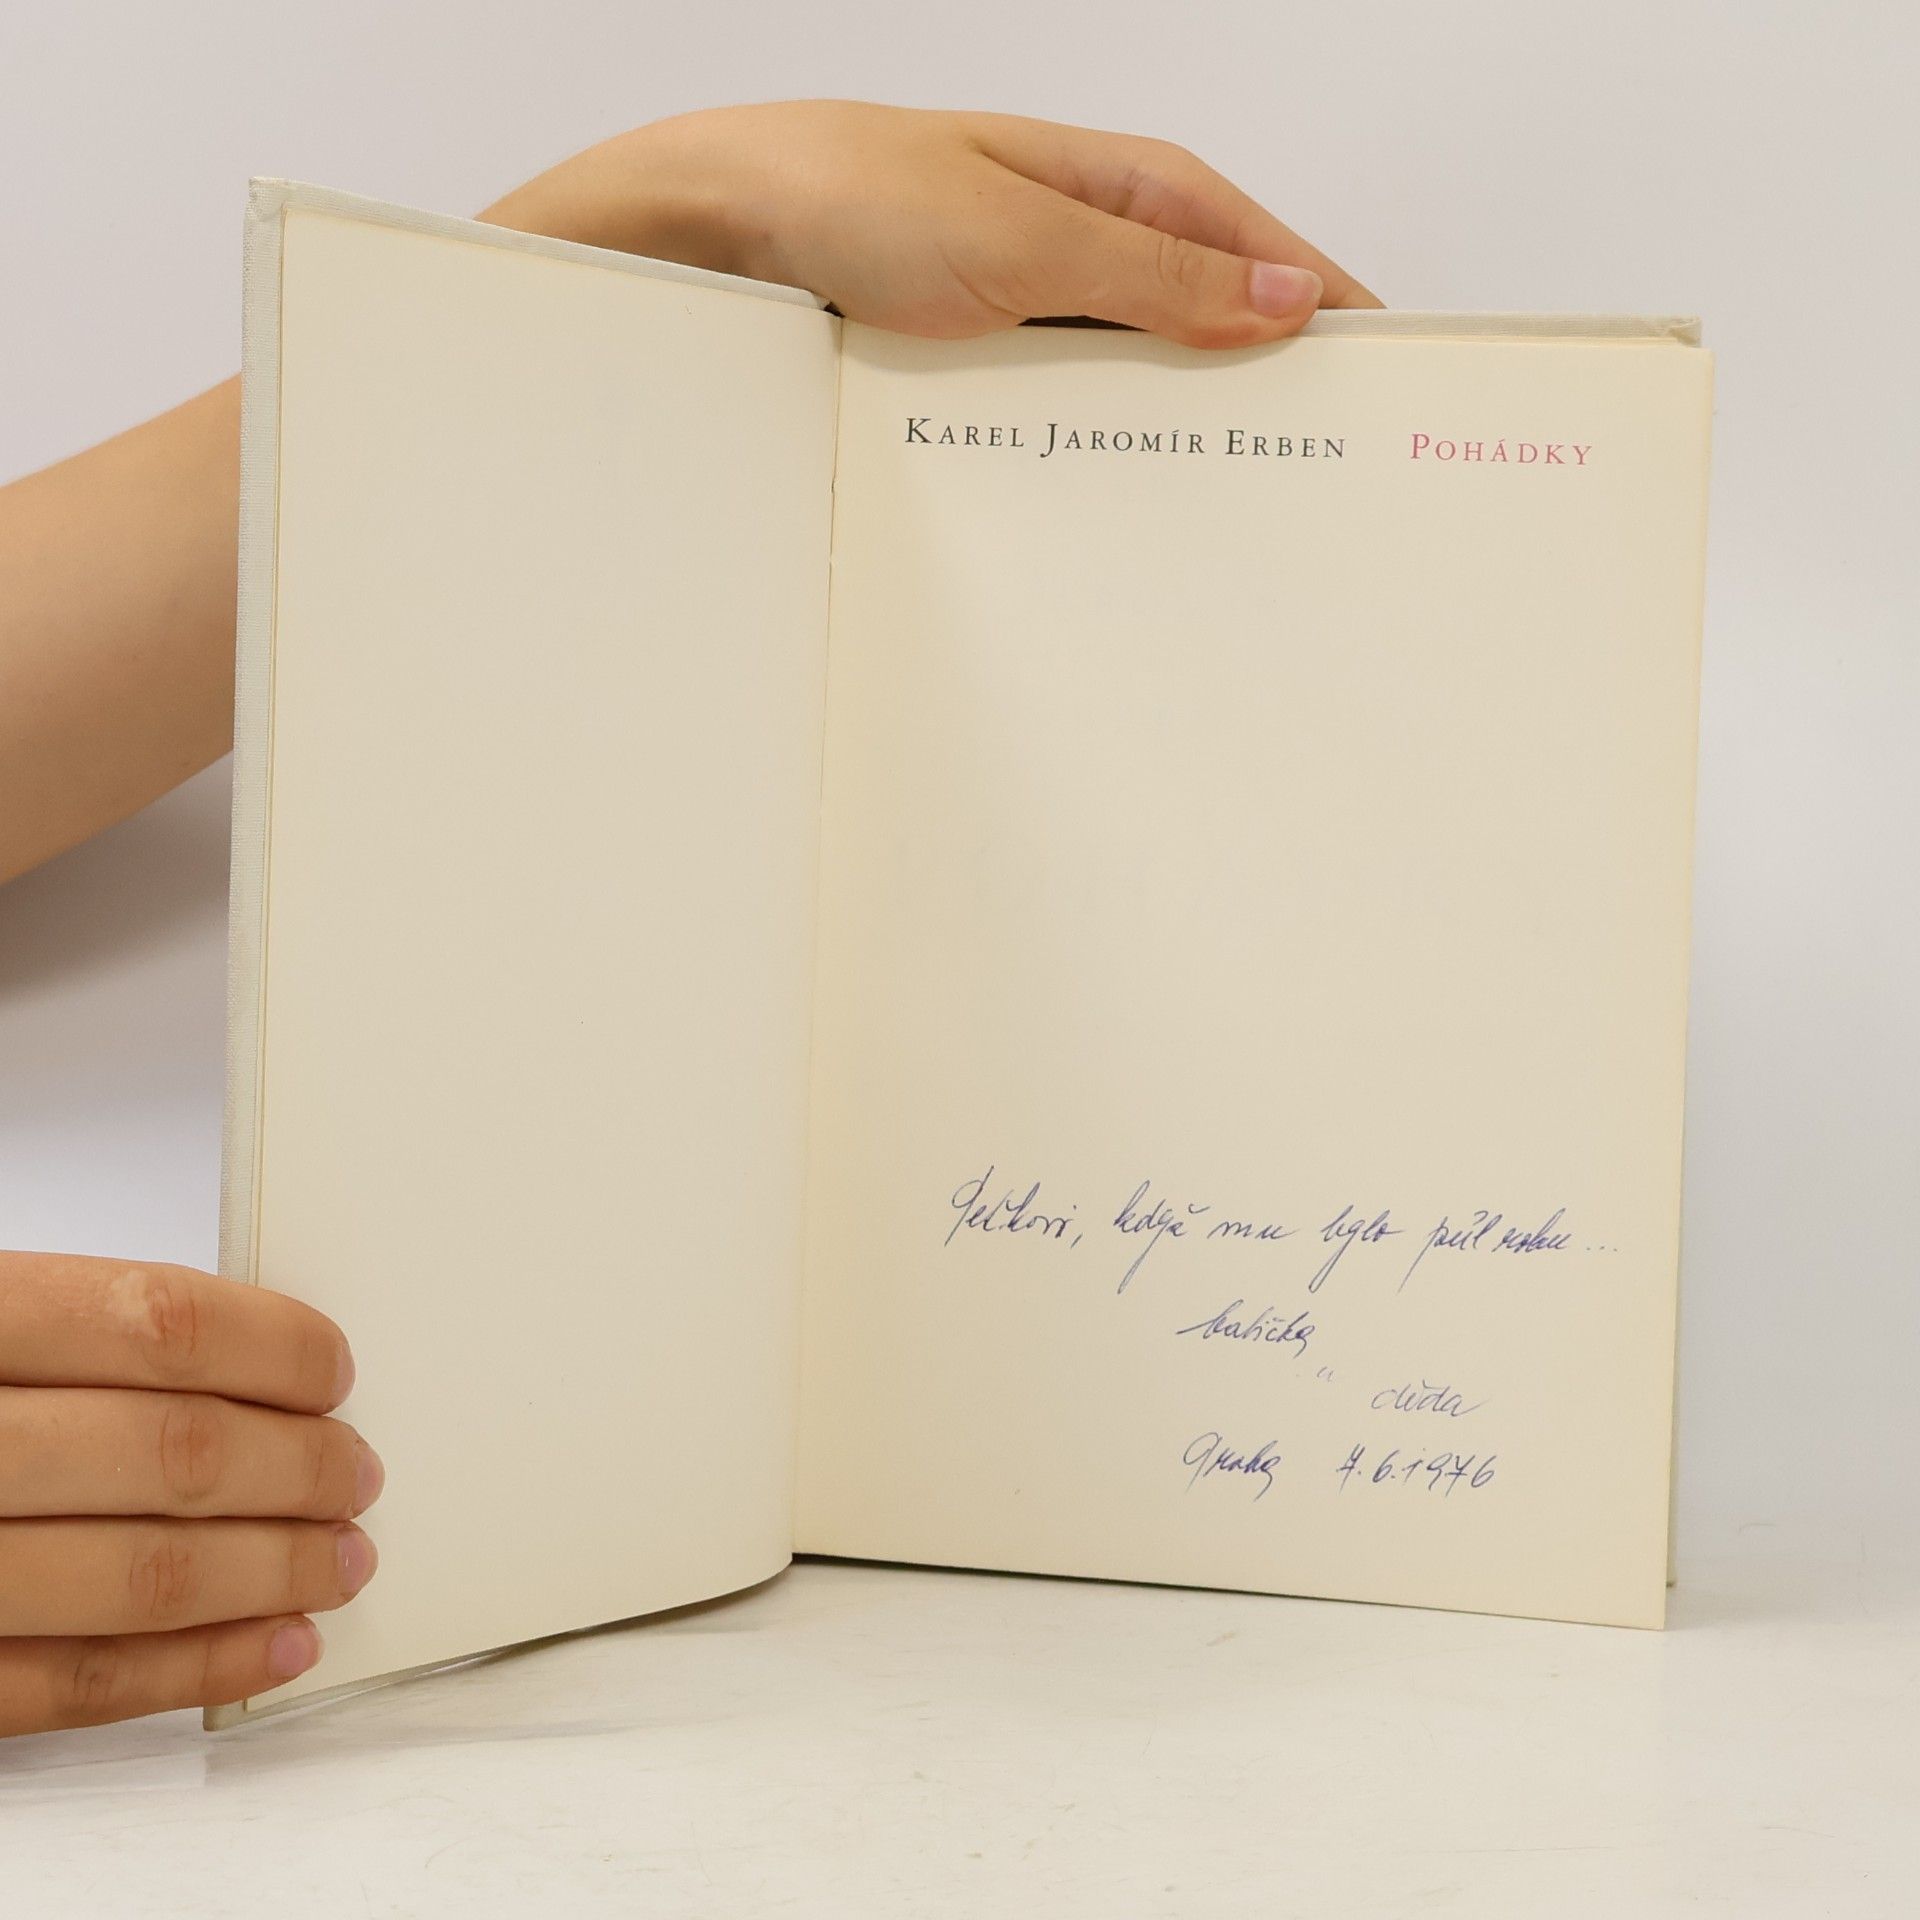 KAREL JAROMÍR ERBEN POHÁDKY
Peťkovi, když mu bylo půl roku...
babička
a
děda
Praha 7.6.1976